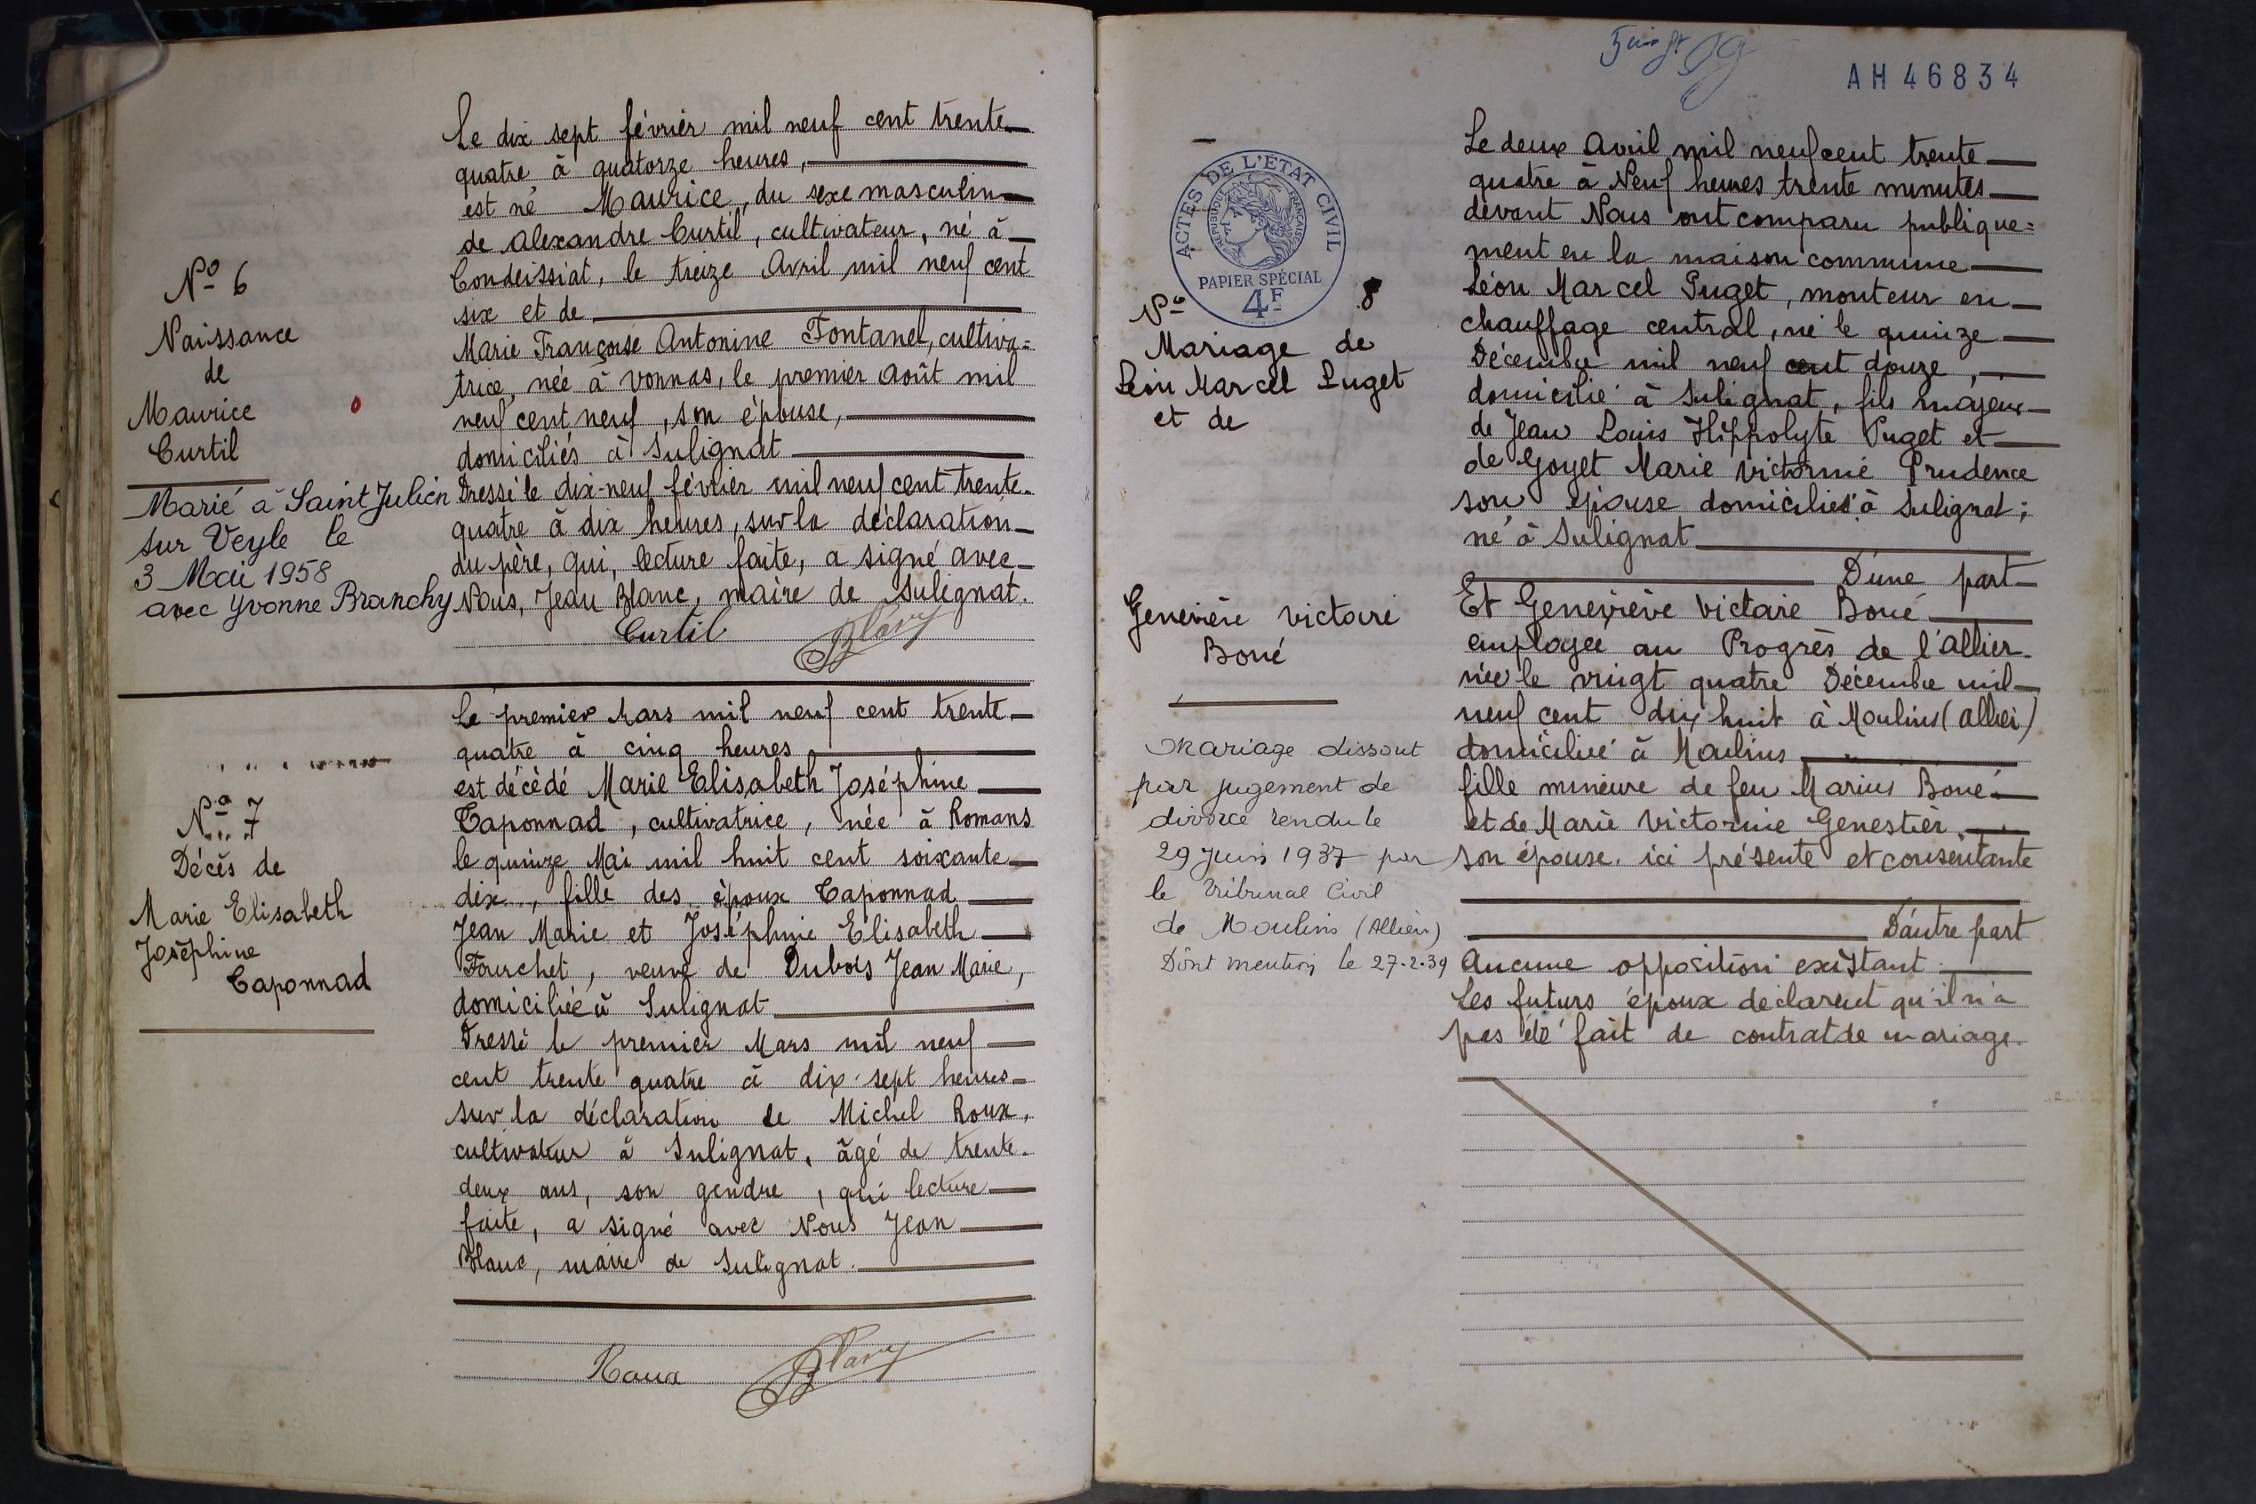 Nº 6
Naissance
de
Maurice
Curtil
Marié à Saint Julien
sur Veyle le
3 Mai 1958
avec Yvonne Branchy
Le dix sept février mil neuf cent trente
quatre à quatorze heures,
est né Maurice, du sexe masculin
de Alexandre Curtil, cultivateur, né à
Condeissiat, le treize Avril mil neuf cent
six et de
Marie Françoise Antonine Fontanel, cultiva=
trice, née à Vonnas, le premier Août mil
neuf cent neuf, son épouse,
domiciliés à Sulignat
Dressé le dix-neuf février mil neuf cent trente-
quatre à dix heures, sur la déclaration
du père, qui, lecture faite, a signé avec
Nous, Jean Blanc, maire de Sulignat.
Curtil Blanc
Nº 7
Décès de
Marie Elisabeth
Joséphine
Taponnad
Le premier Mars mil neuf cent trente
quatre à cinq heures
est décèdé Marie Elisabeth Joséphine
Taponnad, cultivatrice, née à Romans
le quinze Mai mil huit cent soixante
dix, fille des époux Taponnad
Jean Marie et Joséphine Elisabeth
Fourchet, veuve de Dubois Jean Marie,
domiciliée à Sulignat
Dressé le premier Mars mil neuf
cent trente quatre à dix-sept heures
sur la déclaration de Michel Roux,
cultivateur à Sulignat, âgé de trente-
deux ans, son gendre, qui lecture
faite, a signé avec Nous Jean
Blanc, maire de Sulignat.
Roux Blanc
AH 46834
ACTES DE L'ÉTAT CIVIL
RÉPUBLIQUE FRANÇAISE
PAPIER SPÉCIAL
4F
Nº 8
Mariage de
Léon Marcel Puget
et de
Geneviève Victoire
Boué
Mariage dissout
par jugement de
divorce rendu le
29 Juin 1937 par
le Tribunal Civil
de Moulins (Allier)
Dont mention le 27.2.39
Le deux Avril mil neuf cent trente
quatre à Neuf heures trente minutes
devant Nous ont comparu publique=
ment en la maison commune
Léon Marcel Puget, monteur en
chauffage central, né le quinze
Décembre mil neuf cent douze,
domicilié à Sulignat, fils majeur
de Jean Louis Hippolyte Puget et
de Goyet Marie Victorine Prudence
son épouse domiciliés à Sulignat;
né à Sulignat
D'une part
Et Geneviève Victoire Boué
employée au Progrès de l'Allier
née le vingt quatre Décembre mil
neuf cent dix huit à Moulins (Allier)
domiciliée à Moulins
fille mineure de feu Marius Boué
et de Marie Victorine Genestier,
son épouse, ici présente et consentante
D'autre part
Aucune opposition existant
Les futurs époux déclarent qu'il n'a
pas été fait de contrat de mariage.